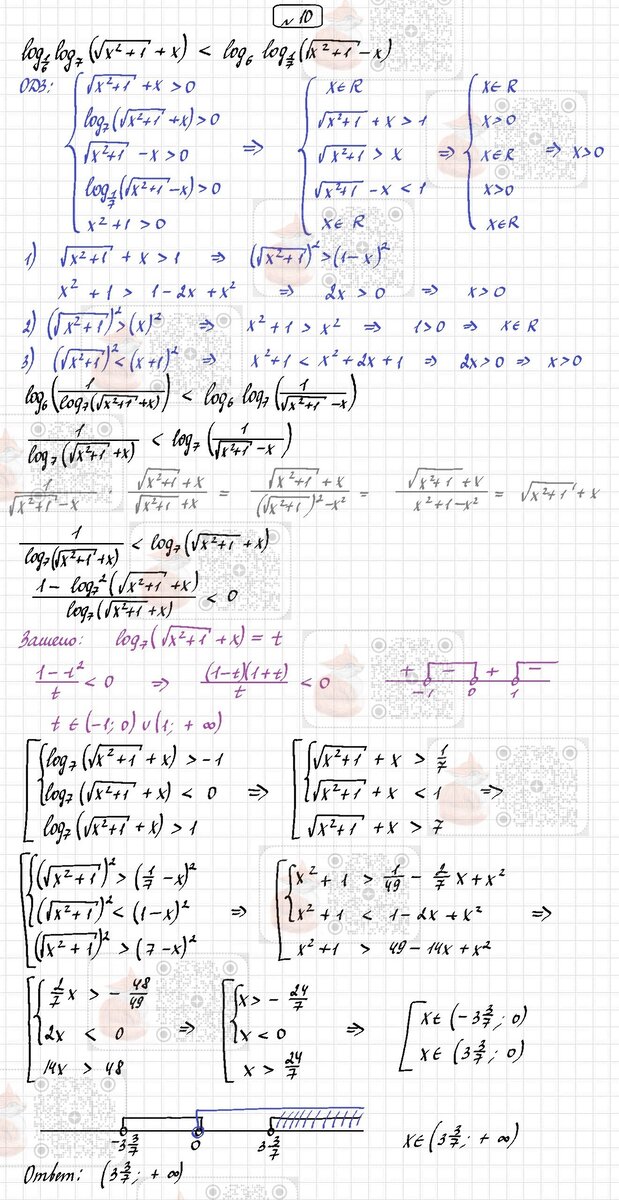 № 10
log_{1/6} log_7 (√(x²+1) + x) < log_6 log_{1/7} (√(x²+1) - x)
ОДЗ: { √(x²+1) + x > 0 ; log_7(√(x²+1) + x) > 0 ; √(x²+1) - x > 0 ; log_{1/7}(√(x²+1) - x) > 0 ; x²+1 > 0 ⇒ { x ∈ R ; √(x²+1) + x > 1 ; √(x²+1) > x ; √(x²+1) - x < 1 ; x ∈ R ⇒ { x ∈ R ; x>0 ; x ∈ R ; x>0 ; x ∈ R ⇒ x>0
1) √(x²+1) + x > 1 ⇒ (√(x²+1))² > (1-x)²
x² + 1 > 1 - 2x + x² ⇒ 2x > 0 ⇒ x > 0
2) (√(x²+1))² > (x)² ⇒ x² + 1 > x² ⇒ 1 > 0 ⇒ x ∈ R
3) (√(x²+1))² < (x+1)² ⇒ x² + 1 < x² + 2x + 1 ⇒ 2x > 0 ⇒ x > 0
log_6 (1/(log_7(√(x²+1) + x))) < log_6 log_7 (1/(√(x²+1) - x))
1/(log_7(√(x²+1) + x)) < log_7 (1/(√(x²+1) - x))
1/(√(x²+1) - x) · (√(x²+1) + x)/(√(x²+1) + x) = (√(x²+1) + x)/((√(x²+1))² - x²) = (√(x²+1) + x)/(x²+1-x²) = √(x²+1) + x
1/(log_7(√(x²+1) + x)) < log_7 (√(x²+1) + x)
(1 - log_7² (√(x²+1) + x))/(log_7(√(x²+1) + x)) < 0
Замена: log_7(√(x²+1) + x) = t
(1-t²)/t < 0 ⇒ ((1-t)(1+t))/t < 0
+ - + -
-1 0 1
t ∈ (-1; 0) ∪ (1; +∞)
[ { log_7(√(x²+1) + x) > -1 ; log_7(√(x²+1) + x) < 0 ; log_7(√(x²+1) + x) > 1 ⇒ [ { √(x²+1) + x > 1/7 ; √(x²+1) + x < 1 ; √(x²+1) + x > 7 ⇒
[ { (√(x²+1))² > (1/7 - x)² ; (√(x²+1))² < (1-x)² ; (√(x²+1))² > (7-x)² ⇒ [ { x² + 1 > 1/49 - 2/7 x + x² ; x² + 1 < 1 - 2x + x² ; x² + 1 > 49 - 14x + x² ⇒
[ { 2/7 x > - 48/49 ; 2x < 0 ; 14x > 48 ⇒ [ { x > - 24/7 ; x < 0 ; x > 24/7 ⇒ [ x ∈ (-3 3/7; 0) ; x ∈ (3 3/7; 0)
-3 3/7 0 3 3/7
x ∈ (3 3/7; +∞)
Ответ: (3 3/7; +∞)